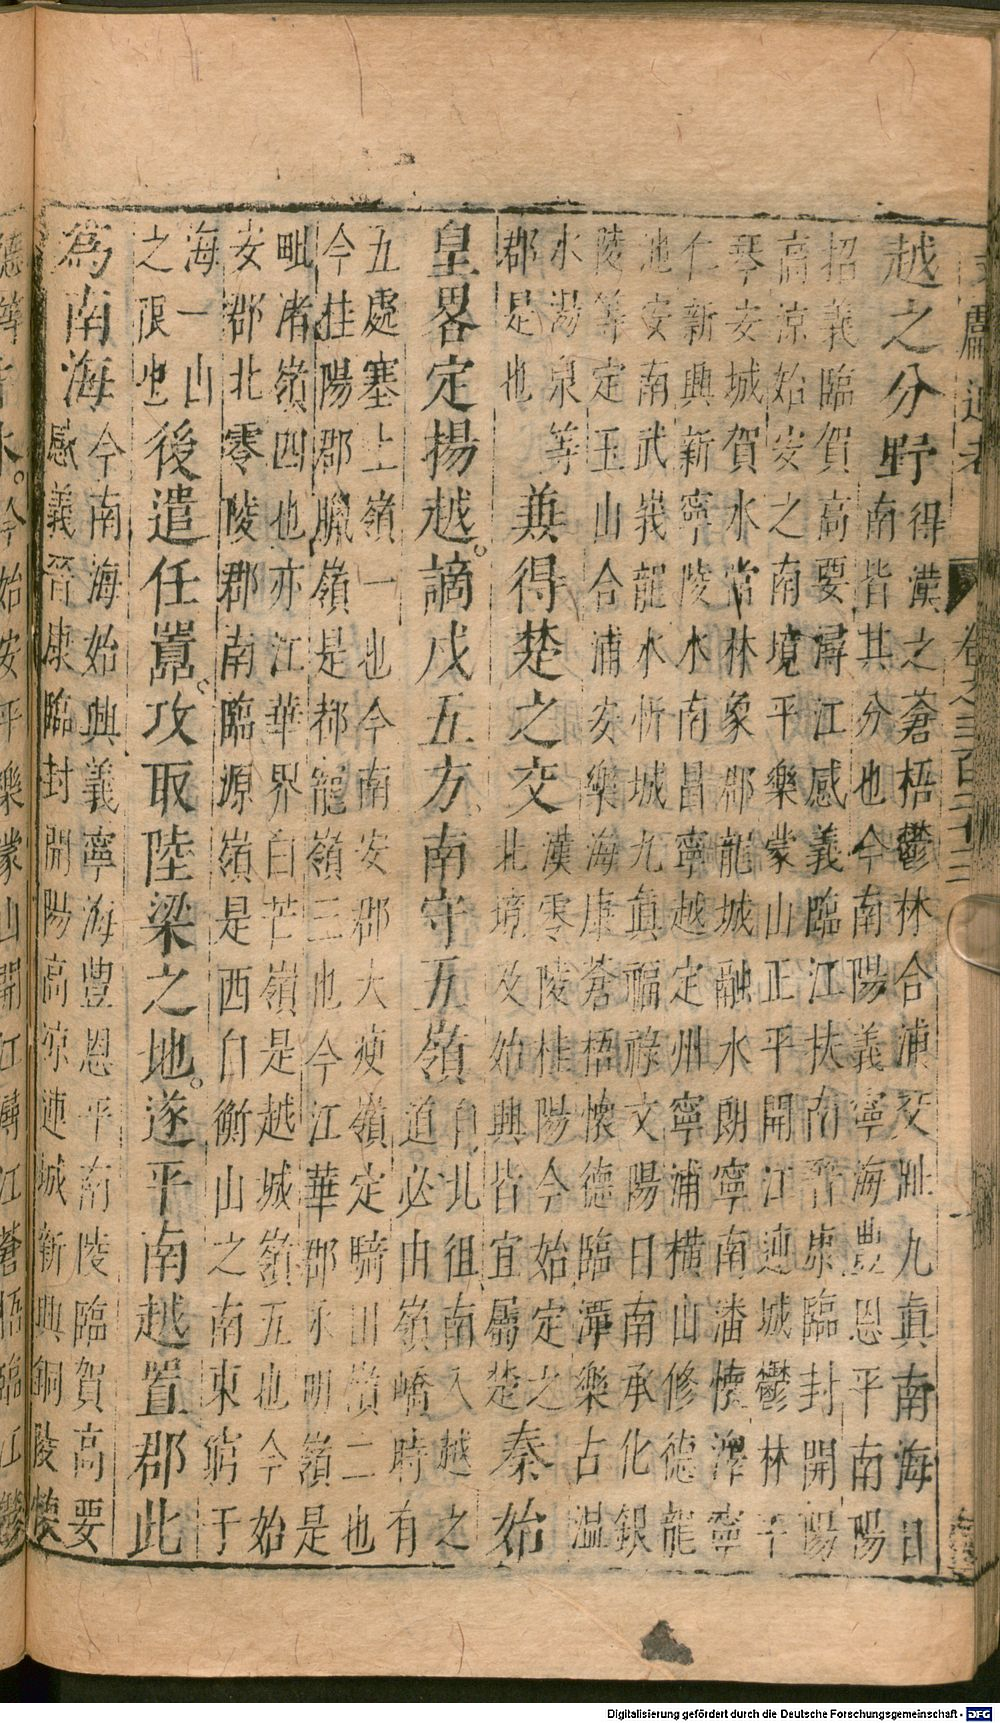 文獻通考 卷之三百二十三
越之分野得漢之蒼梧鬱林合浦交趾九真南海日
南皆其分也今南陽義寧海豐恩平南陽
招義臨賀高要潯江感義臨江扶南晉康臨封開陽
高涼始安之南境平樂蒙山正平開江連城鬱林平
琴安城賀水常林象郡龍城融水朗寧南潘懷澤寧
仁新興新寧陵水南昌寧越定州寧浦橫山修德龍
池安南武峩龍水忻城九眞福祿文陽日南承化銀
陵等定玉山合浦安樂海康蒼梧懷德臨潭樂古溫
水湯泉等
郡是也
兼得楚之交漢零陵桂陽今始定之
北境及始興皆宜屬楚
秦始
皇畧定揚越。謫戍五方、南守五嶺自北徂南入越之
道必由嶺嶠時有
五處塞上嶺一也今南安郡大庾嶺定騎田嶺二也
今桂陽郡臘嶺是都龐嶺三也今江華郡永明嶺是
毗渚嶺四也亦江華界白芒嶺是越城嶺五也今始
安郡北零陵郡南臨源嶺是西自衡山之南東窮于
海一山
之限也
後遣任囂、攻取陸梁之地。遂平南越置郡此
爲南海今南海始興義寧海豐恩平南陵臨賀高要
感義晉康臨封開陽高涼連城新興銅陵懷
水。今始安平樂蒙山開江潯江蒼梧臨江鬱
Digitalisierung gefördert durch die Deutsche Forschungsgemeinschaft - DFG